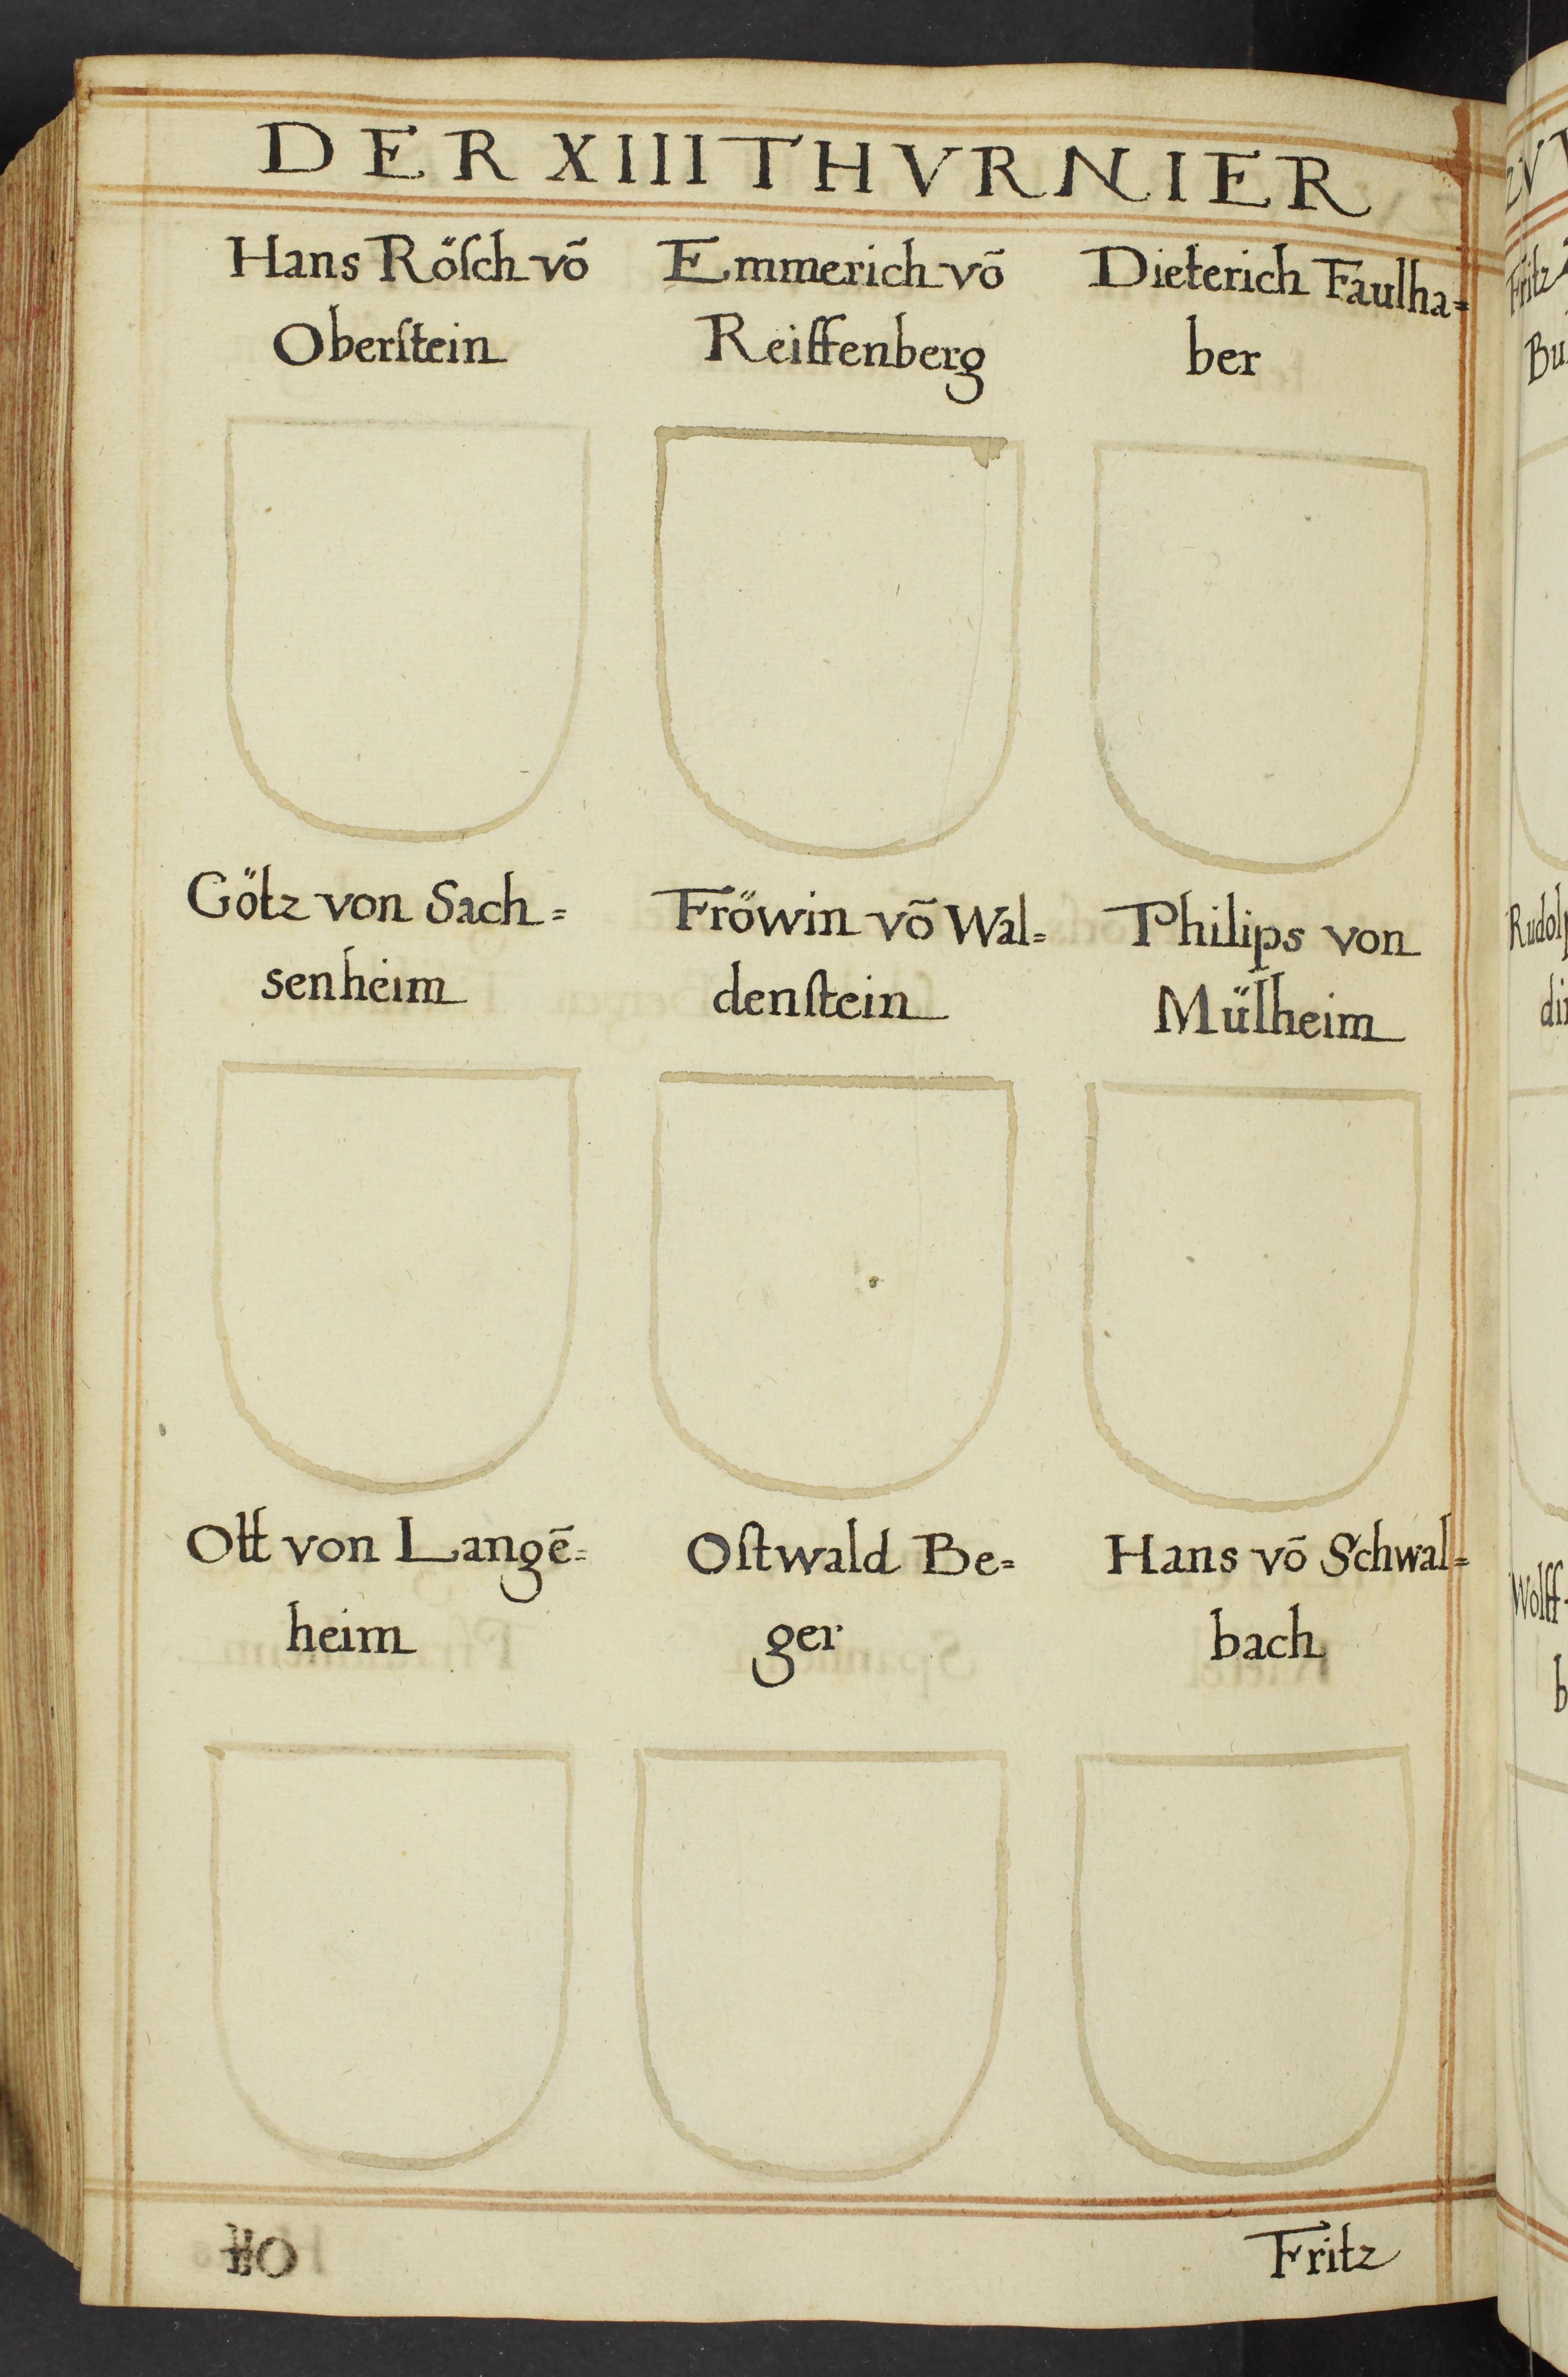 DER XIIII THVRNIER
Hans Röſch võ
Oberſtein
Emmerich võ
Reiffenberg
Dieterich Faulha=
ber
Götz von Sach=
senheim
Fröwin võ Wal=
denſtein
Philips von
Mülheim
Ott von Langē=
heim
Oſtwald Be=
ger
Hans võ Schwal=
bach
Fritz
Fritz
Bu
Rudolp
din
Wolff
b